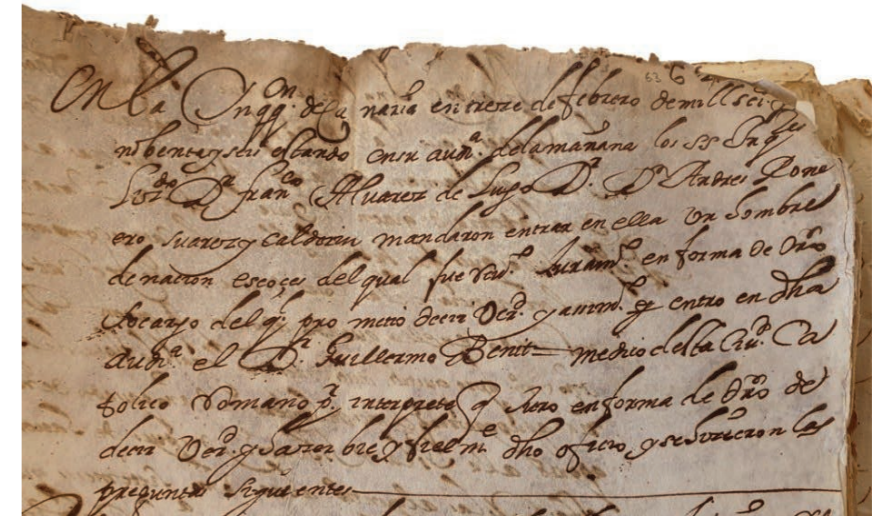 63 6
En la Inqqon. de Canaria en siete de febrero de mill seiso. y
nobenta y seis estando en su auda. de la mañana los SS Inqres
Lizdo. Dr. Franco. Alvarez de Lugo Dr. Dn Andres Rome
ero Suarez y Calderin mandaron entrar en ella Un hombre
de nacion escoçes del qual fue Rdo. Juramto. en forma de Dro
So cargo del q. prometio decir Verd. y assimo. q. entro en dha
auda. el Dr. Guillermo Benit medico desta Ciud. Ca
tolico Romano p. interprete q Juro en forma de Dro de
decir Verd. y hazer bien y fielmte dho oficio, y se hicieron las
preguntas siguientes